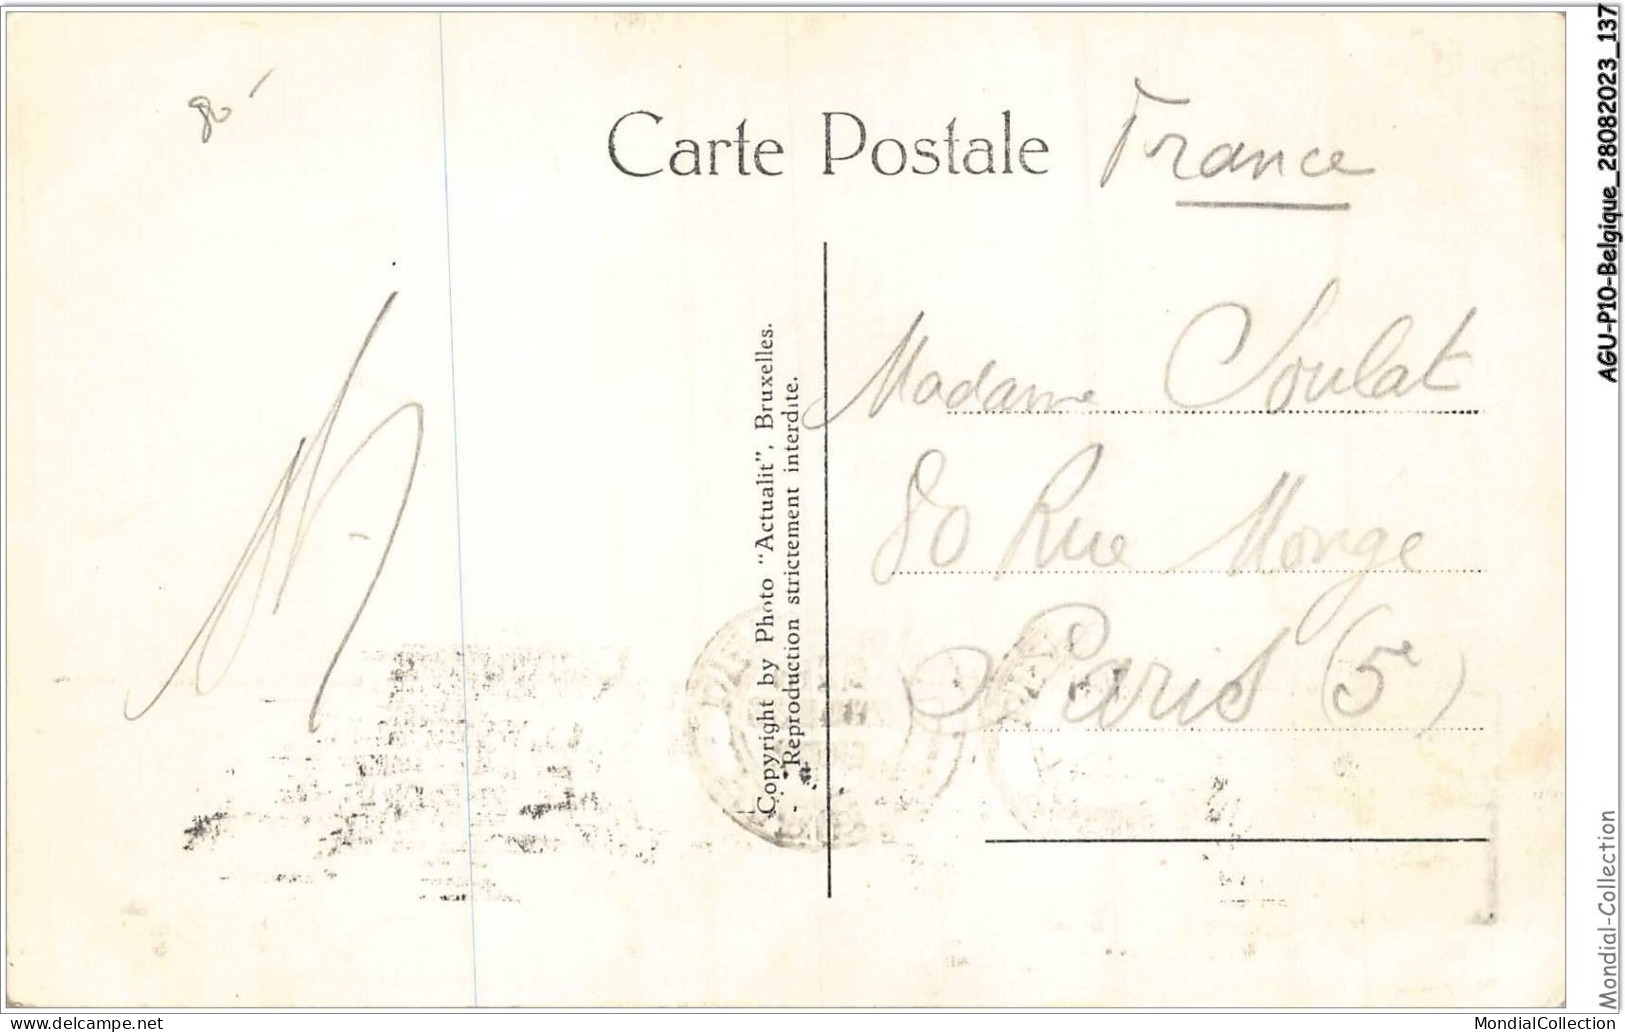 Carte Postale
France
Madame Soulat
80 Rue Monge
Paris (5e)
Copyright by Photo "Actualit", Bruxelles.
Reproduction strictement interdite.
AGU-P10-Belgique_28082023_137
Mondial-Collection
www.delcampe.net
MondialCollection